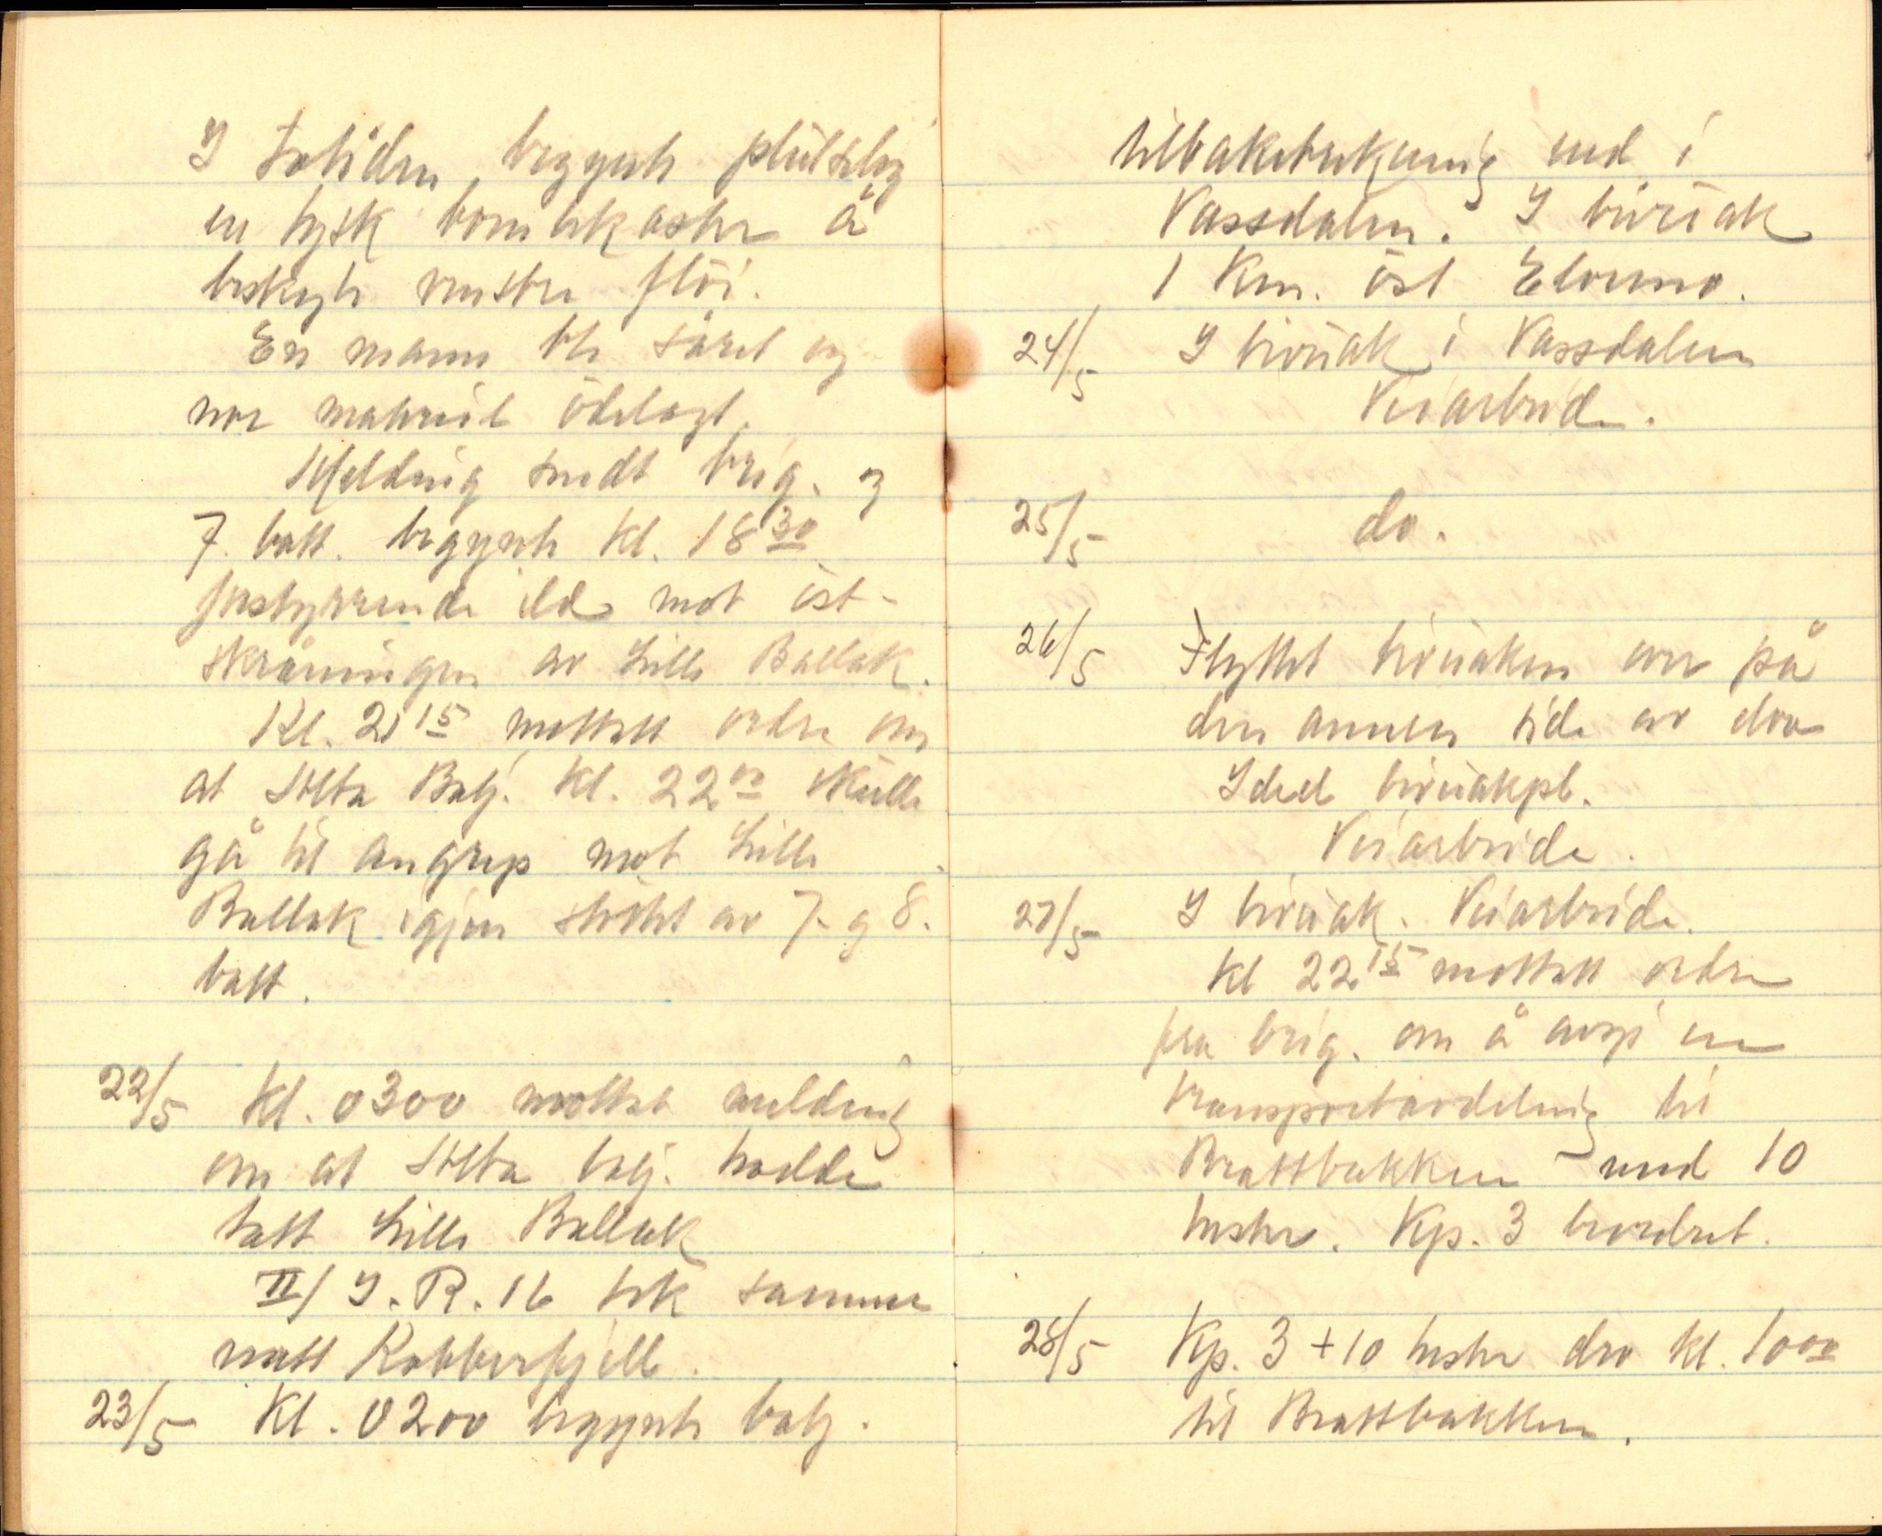 I 3-tiden begynte plutselig
en tysk bombekaster å
beskyte venstre fløi.
En mann ble såret og
noe materiel ödelagt.
Melding sendt brig. og
7. batt. begynte kl. 18 30
forstyrrende ild mot öst-
skråningen av Lille Ballak.
Kl. 21 15 mottatt ordre om
at Alta Batj. kl. 22 00 skulle
gå til angrep mot Lille
Ballak igjen støttet av 7. og 8.
batt.
22/5 Kl. 0300 mottatt melding
om at Alta batj. hadde
tatt Lille Ballak
II/ I.R. 16 tok samme
natt Kobberfjell.
23/5 Kl. 0200 begynte batj.
tilbaketrekning ned i
Vassdalen. I bivuak
1 Km. öst Elvemo.
24/5 I bivuak i Vassdalen
Veiarbeide.
25/5 do.
26/5 Flyttet bivuaken over på
den annen side av elva
Ideel bivuakpl.
Veiarbeide.
27/5 I bivuak. Veiarbeide.
Kl 22 15 mottatt ordre
fra brig. om å avgi en
transportavdeling til
Brattbakken med 10
hester. Kp. 3 beordret.
28/5 Kp. 3 + 10 hester dro kl. 10 00
til Brattbakken.